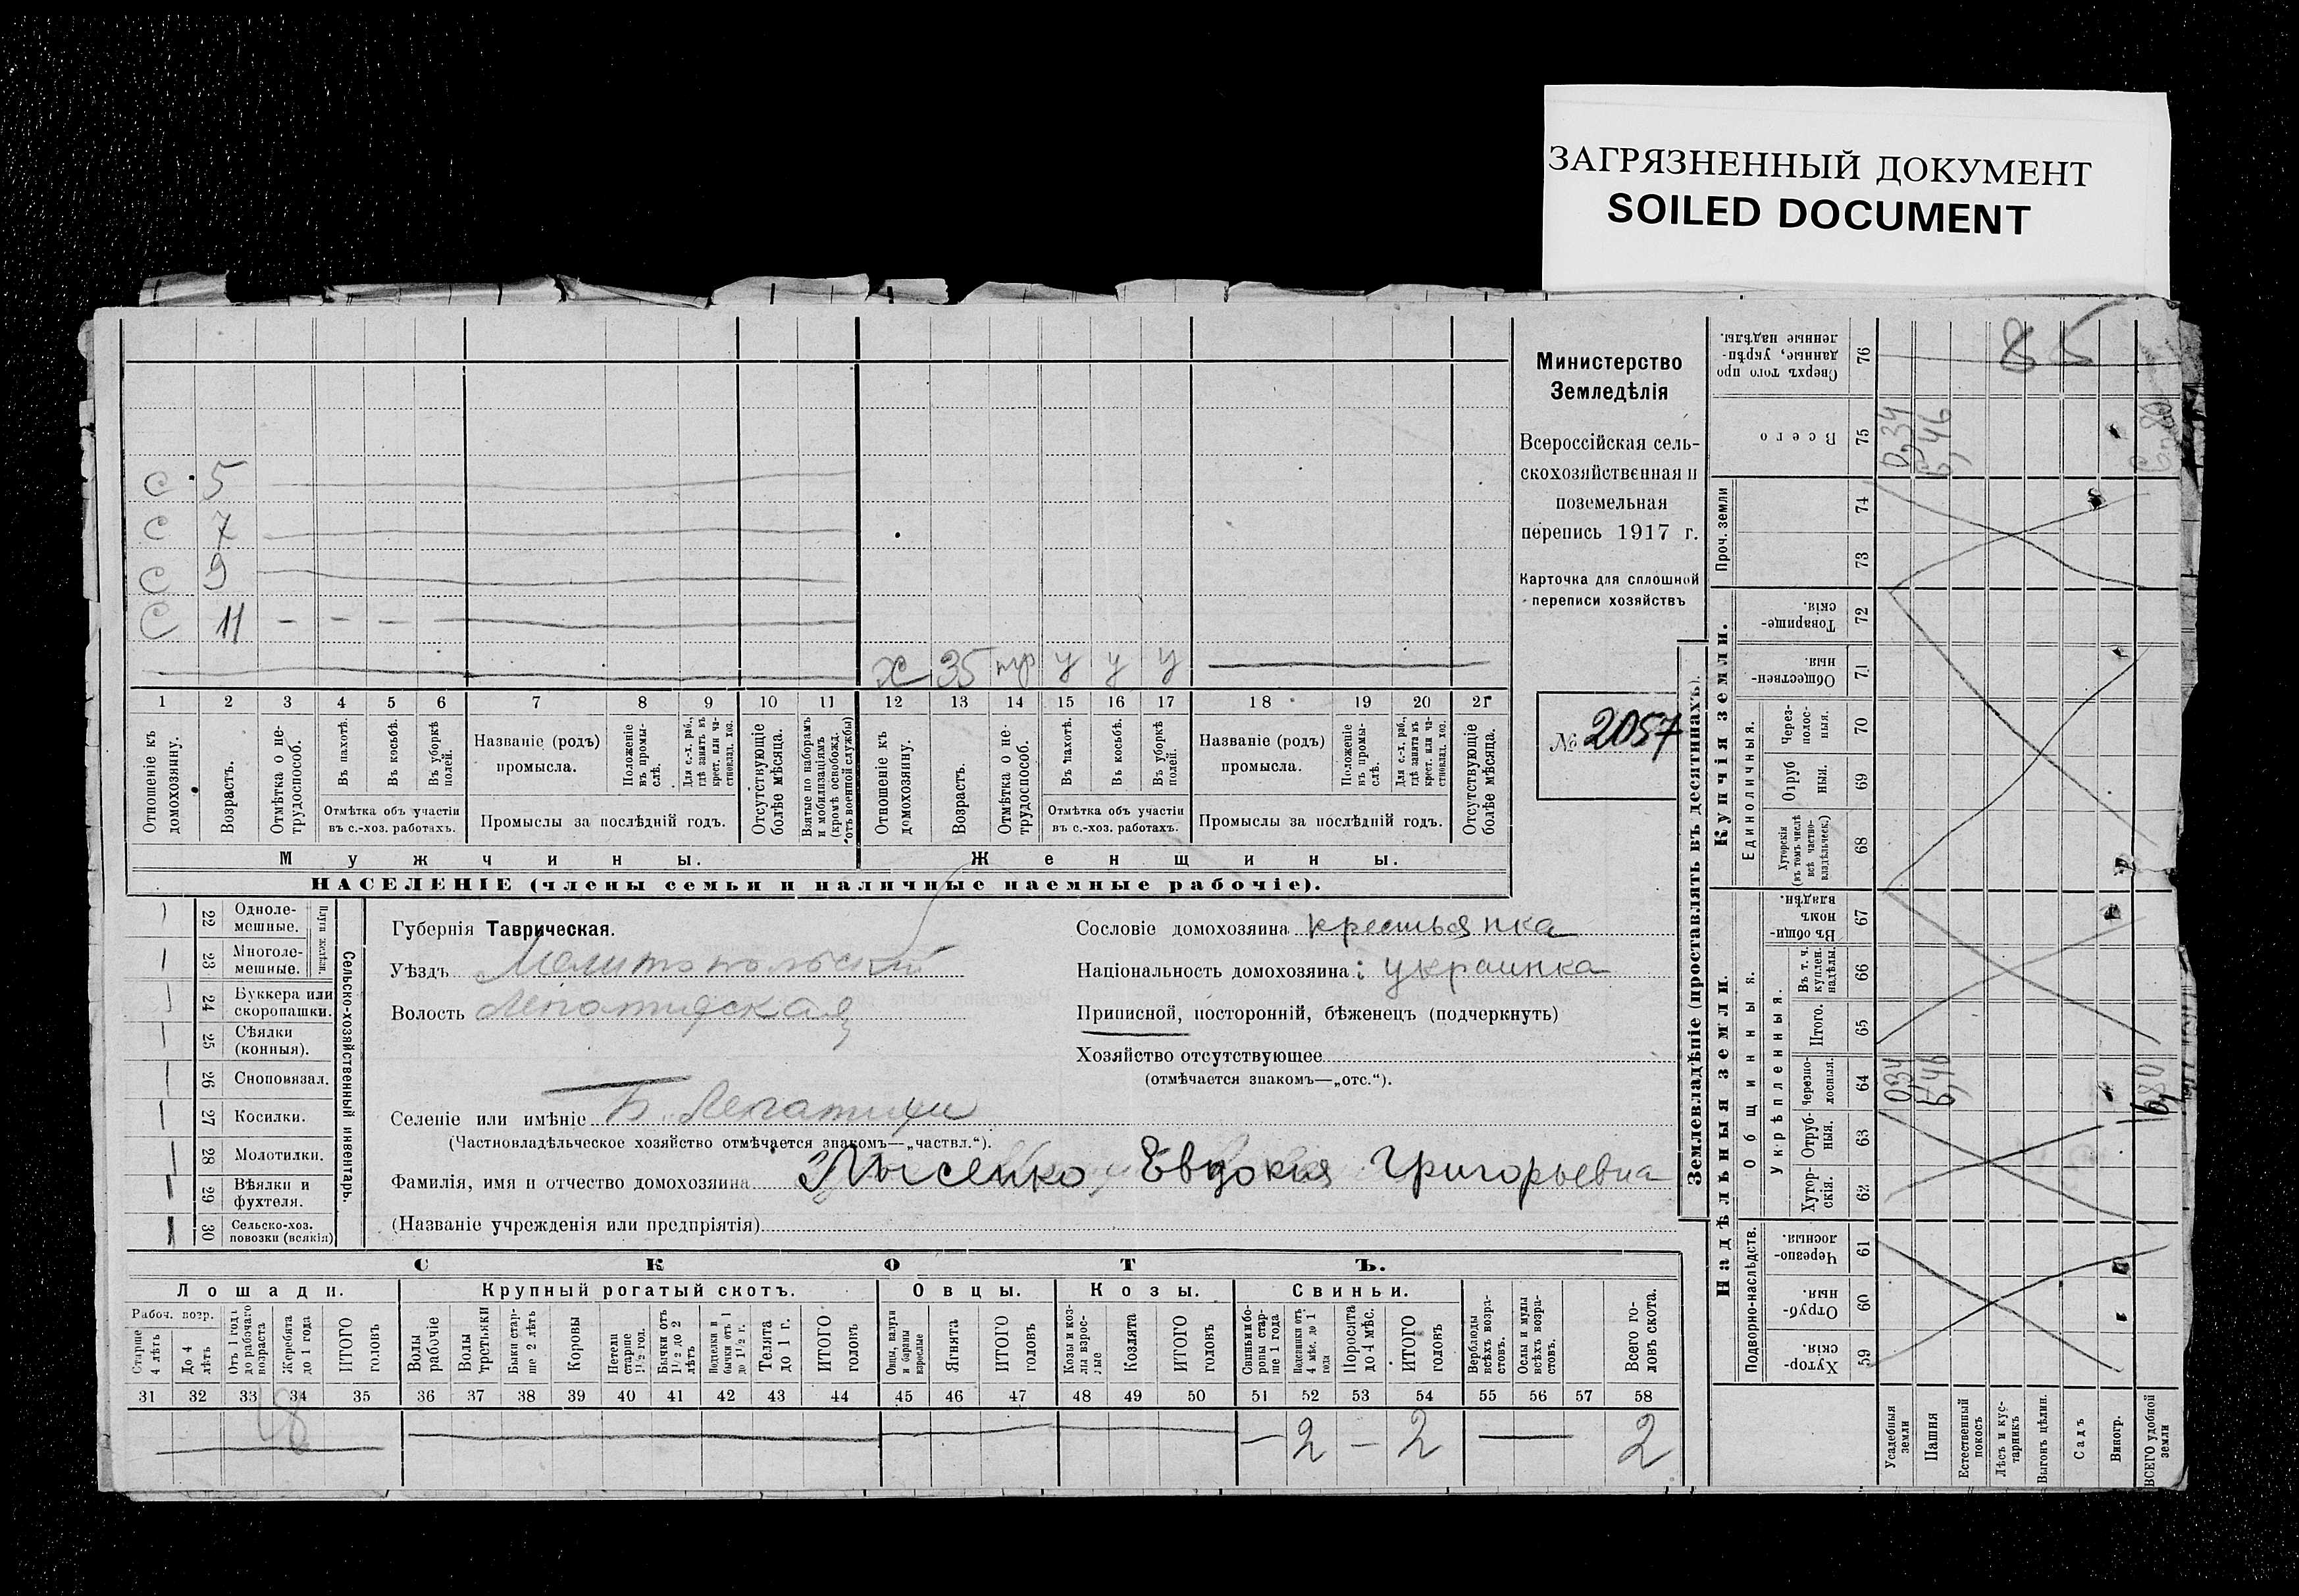 ЗАГРЯЗНЕННЫЙ ДОКУМЕНТ
SOILED DOCUMENT
с 5
с 7
с 9
с 11 – – –
х 35 пр у у у
1 2 3 4 5 6 7 8 9 10 11 12 13 14 15 16 17 18 19 20 21
Отношеніе къ домохозяину.
Возрастъ.
Отмѣтка о нетрудоспособ.
Въ пахотѣ.
Въ косьбѣ.
Въ уборкѣ полей.
Отмѣтка объ участіи
въ с.-хоз. работахъ.
Названіе (родъ)
промысла.
Положеніе въ промыслѣ.
Для с.-х. раб., гдѣ занятъ въ крест. или частновлад. хоз.
Промыслы за послѣдній годъ.
Отсутствующіе болѣе мѣсяца.
Взятые по наборамъ и мобилизаціямъ (кромѣ освобожд. отъ военной службы)
Отношеніе къ домохозяину.
Возрастъ.
Отмѣтка о нетрудоспособ.
Въ пахотѣ.
Въ косьбѣ.
Въ уборкѣ полей.
Отмѣтка объ участіи
въ с.-хоз. работахъ.
Названіе (родъ)
промысла.
Положеніе въ промыслѣ.
Для с.-х. раб., гдѣ занята въ крест. или частновлад. хоз.
Промыслы за послѣдній годъ.
Отсутствующіе болѣе мѣсяца.
Мужчины.
Женщины.
НАСЕЛЕНІЕ (члены семьи и наличные наемные рабочіе).
Министерство
Земледѣлія
Всероссійская сель-
скохозяйственная и
поземельная
перепись 1917 г.
Карточка для сплошной
переписи хозяйствъ
№ 2057
Плуги желѣзн.
22 Одноле-
мешные.
23 Многоле-
мешные.
24 Буккера или
скоропашки.
25 Сѣялки
(конныя).
26 Сноповязал.
27 Косилки.
28 Молотилки.
29 Вѣялки и
фухтеля.
30 Сельско-хоз.
повозки (всякія)
Сельско-хозяйственный инвентарь.
Губернія Таврическая.
Уѣздъ Мелитопольский
Волость Лепатихская
Селеніе или имѣніе Б. Лепатихи
(Частновладѣльческое хозяйство отмѣчается знакомъ—„частвл.“).
Фамилія, имя и отчество домохозяина Лысенко Евдокия Григорьевна
(Названіе учрежденія или предпріятія)
Сословіе домохозяина крестьянка
Національность домохозяина: украинка
Приписной, посторонній, бѣженецъ (подчеркнуть)
Хозяйство отсутствующее
(отмѣчается знакомъ—„отс.“).
СКОТЪ.
Лошади.
Крупный рогатый скотъ.
Овцы.
Козы.
Свиньи.
Рабоч. возр.
Старше 4 лѣтъ
До 4 лѣтъ
Отъ 1 года до рабочаго возраста
Жеребята до 1 года
ИТОГО головъ
Волы рабочіе
Волы третьяки
Быки старше 2 лѣтъ
Коровы
Нетели старше 1½ год.
Бычки отъ 1½ до 2 лѣтъ
Подтелки и бычки отъ 1 до 1½ г.
Телята до 1 г.
ИТОГО головъ
Овцы, валухи и бараны взрослые
Ягнята
ИТОГО головъ
Козы и козлы взрослые
Козлята
ИТОГО головъ
Свиньи и боровы старше 1 года
Подсвинки отъ 4 мѣс. до 1 года
Поросята до 4 мѣс.
ИТОГО головъ
Верблюды всѣхъ возрастовъ.
Ослы и мулы всѣхъ возрастовъ.
Всего головъ скота.
31 32 33 34 35 36 37 38 39 40 41 42 43 44 45 46 47 48 49 50 51 52 53 54 55 56 57 58
18
– 2 – 2 – 2
Землевладѣніе (проставлять въ десятинахъ).
Купчія земли.
Надѣльныя земли.
Сверхъ того проданные, укрѣпленные надѣлы. 76
85
Всего 75
0,34
6,46
6,80
Проч. земли
74
73
Товарищескія. 72
Общественныя. 71
Единоличныя.
Черезполосныя. 70
Отрубныя. 69
Хуторскія (въ томъ числѣ всѣ частновладѣльческ.) 68
Общинныя.
Въ общинномъ владѣн. 67
Укрѣпленныя.
Въ т. ч. куплен. надѣлы. 66
Итого. 65
Черезполосныя. 64
0,34
6,46
6,80
Отрубныя. 63
Хуторскія. 62
Подворно-наслѣдств.
Черезполосныя. 61
Отрубныя. 60
Хуторскія. 59
Усадебныя земли
Пашня
Естественный покосъ
Лѣсъ и кустарникъ
Выгонъ цѣлин.
Садъ
Виногр.
ВСЕГО удобной земли